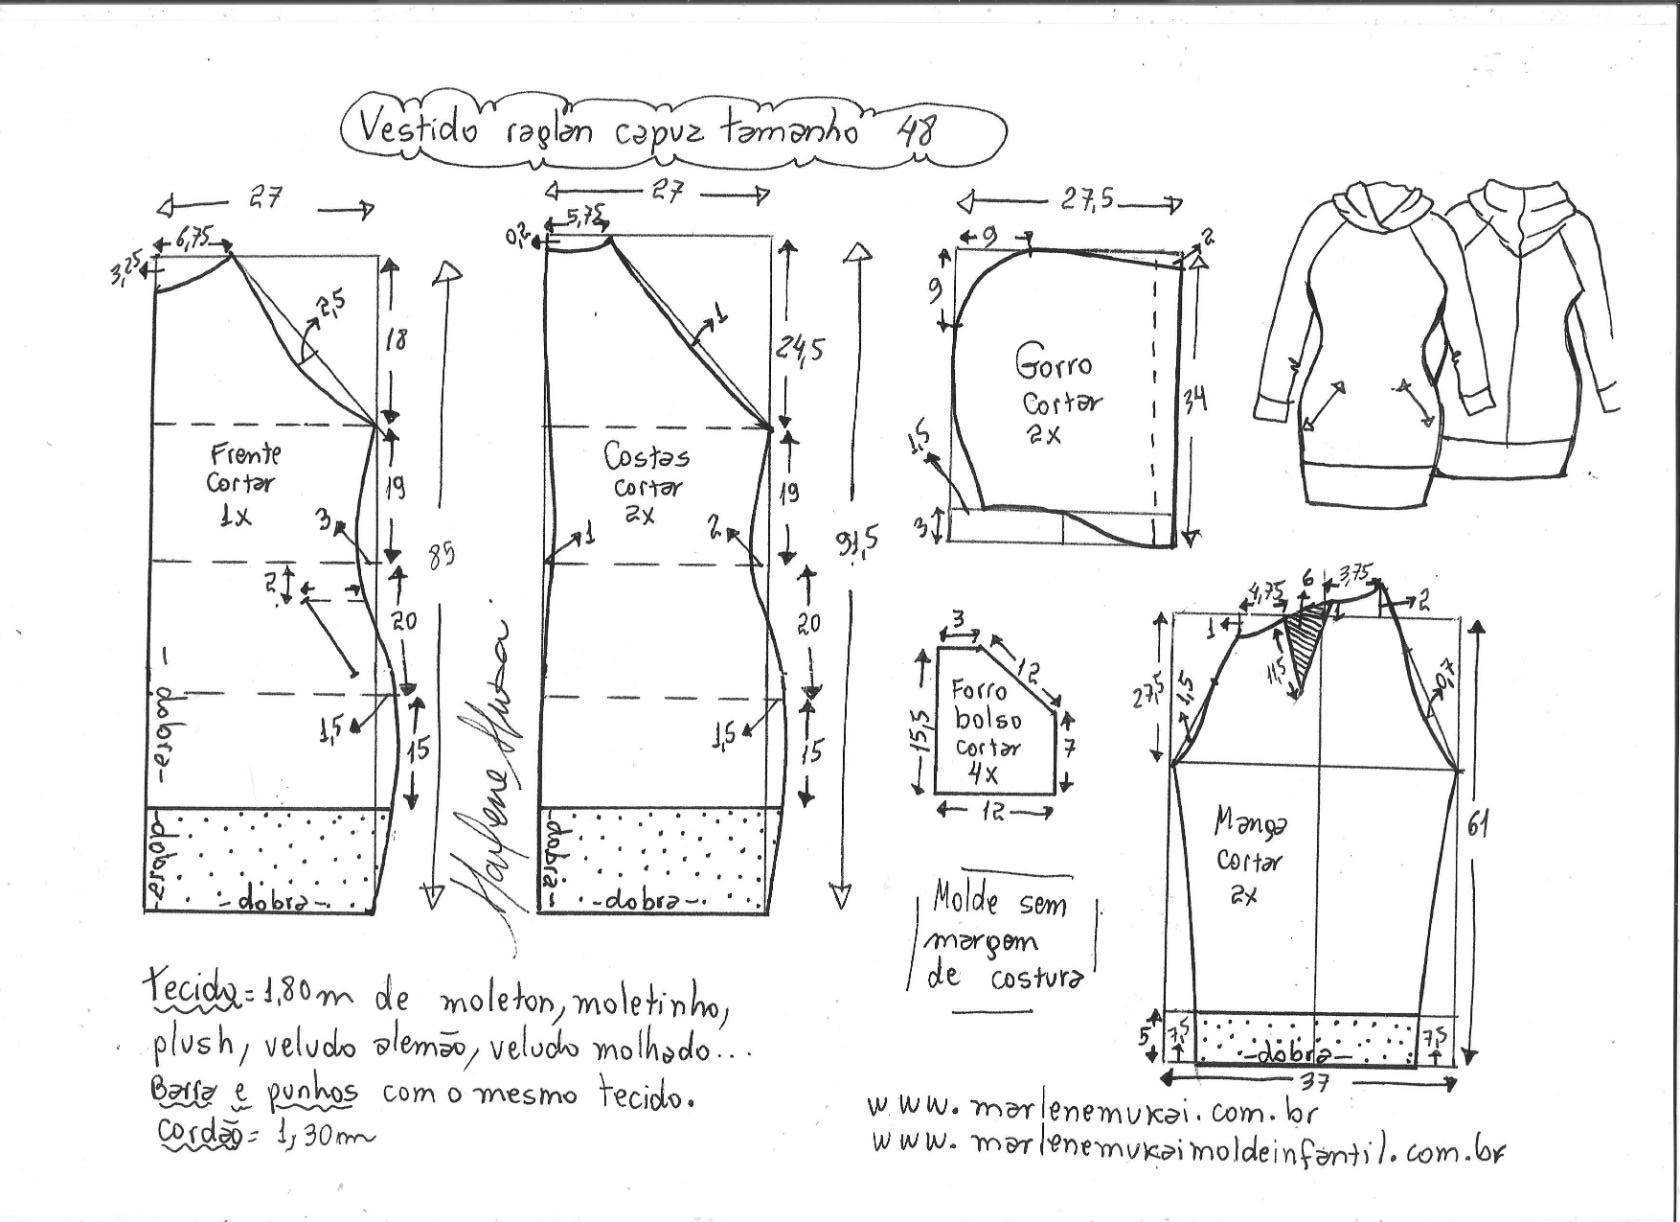 Vestido raglan capuz tamanho 48
27
6,75
3,25
2,5
18
Frente
cortar
1x
19
3
85
2
20
1,5
15
-dobra-
-dobra-
-dobra-
27
5,75
0,2
1
24,5
Costas
cortar
2x
19
1
2
91,5
20
1,5
15
-dobra-
-dobra-
Marlene Mukai
27,5
9
2
9
Gorro
cortar
2x
34
1,5
3
3
12
15,5
Forro
bolso
cortar
4x
7
12
Molde sem
margem
de costura
4,75
6
3,75
1
1
2
27,5
1,5
11,5
0,7
Manga
cortar
2x
61
5
7,5
-dobra-
7,5
37
tecido=1,80m de moleton, moletinho,
plush, veludo alemão, veludo molhado...
Barra e punhos com o mesmo tecido.
cordão= 1,30m
www.marlenemukai.com.br
www.marlenemukaimoldeinfantil.com.br